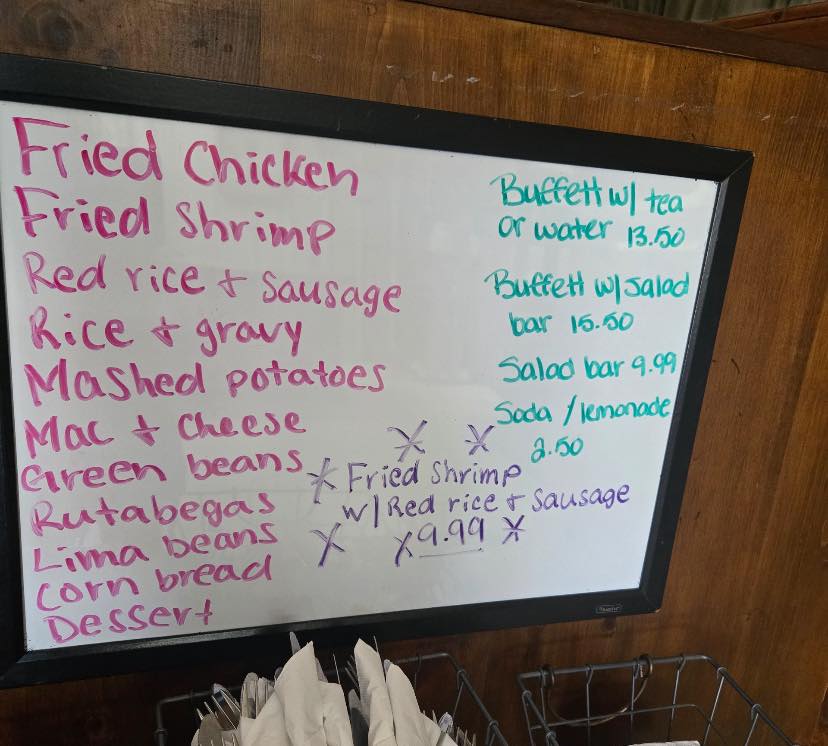 Fried Chicken
Fried Shrimp
Red rice + sausage
Rice + gravy
Mashed potatoes
Mac + cheese
Green beans
Rutabegas
Lima beans
Corn bread
Dessert
Buffett w/ tea
or water 13.50
Buffett w/ salad
bar 15.50
Salad bar 9.99
Soda / lemonade
2.50
Fried Shrimp
w/ Red rice + sausage
9.99